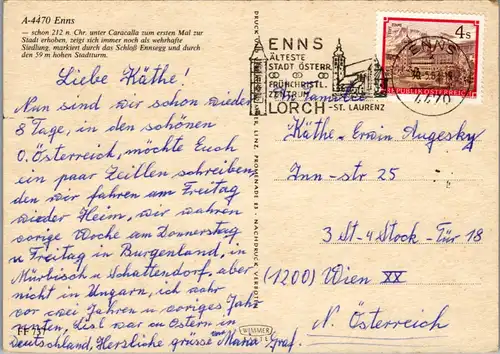 A-4470 Enns
— schon 212 n. Chr. unter Caracalla zum ersten Mal zur
Stadt erhoben, zeigt sich immer noch als wehrhafte
Siedlung, markiert durch das Schloß Ennsegg und durch
den 59 m hohen Stadtturm.
Liebe Käthe!
Nun sind wir schon wieder
8 Tage, in den schönen
O. Österreich, möchte Euch
ein paar Zeillen schreiben,
den wir fahren am Freitag
wieder Heim, wir wahren
vorige Woche am Donnerstag
u Freitag in Burgenland, in
Mürbisch u Schattendorf, aber
nicht in Ungarn, ich wahr
vor zwei Jahren u voriges Jahr
unten, Lisl war in Ostern in
Deutschland, Herzliche grüsse Maria Graf.
FF 731
LINZ, PROMENADE 23 - NACHDRUCK VERBOTEN
WIMMER
ENNS
ÄLTESTE
STADT ÖSTERR.
FRÜHCHRISTL.
ZENTRUM
LORCH-ST. LAURENZ
4 s
REPUBLIK ÖSTERREICH
ENNS
4470
Familie
Käthe-Erwin Augesky
Inn-str 25
3 St-4 Stock-Tür 18
(1200) Wien XX
N. Österreich